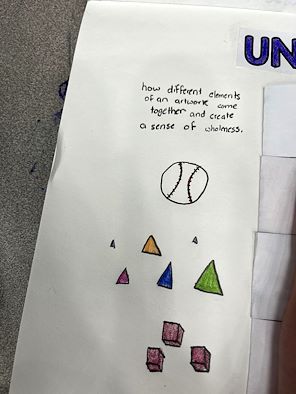 UN
how different elements
of an artwork come
together and create
a sense of wholness.